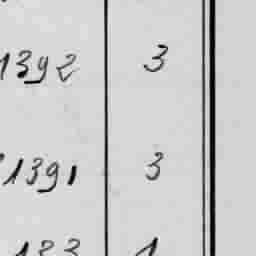 1392 3
1391 3
133 1